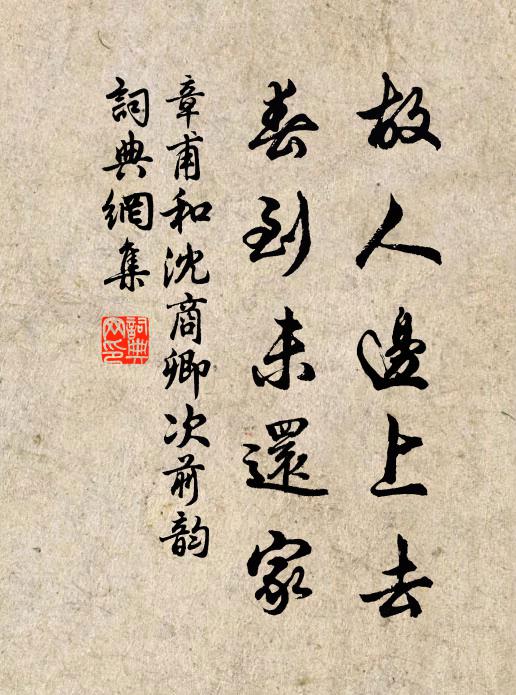 故人邊上去
春到未還家
章甫和沈商卿次前韵
詞典網集
詞典網印